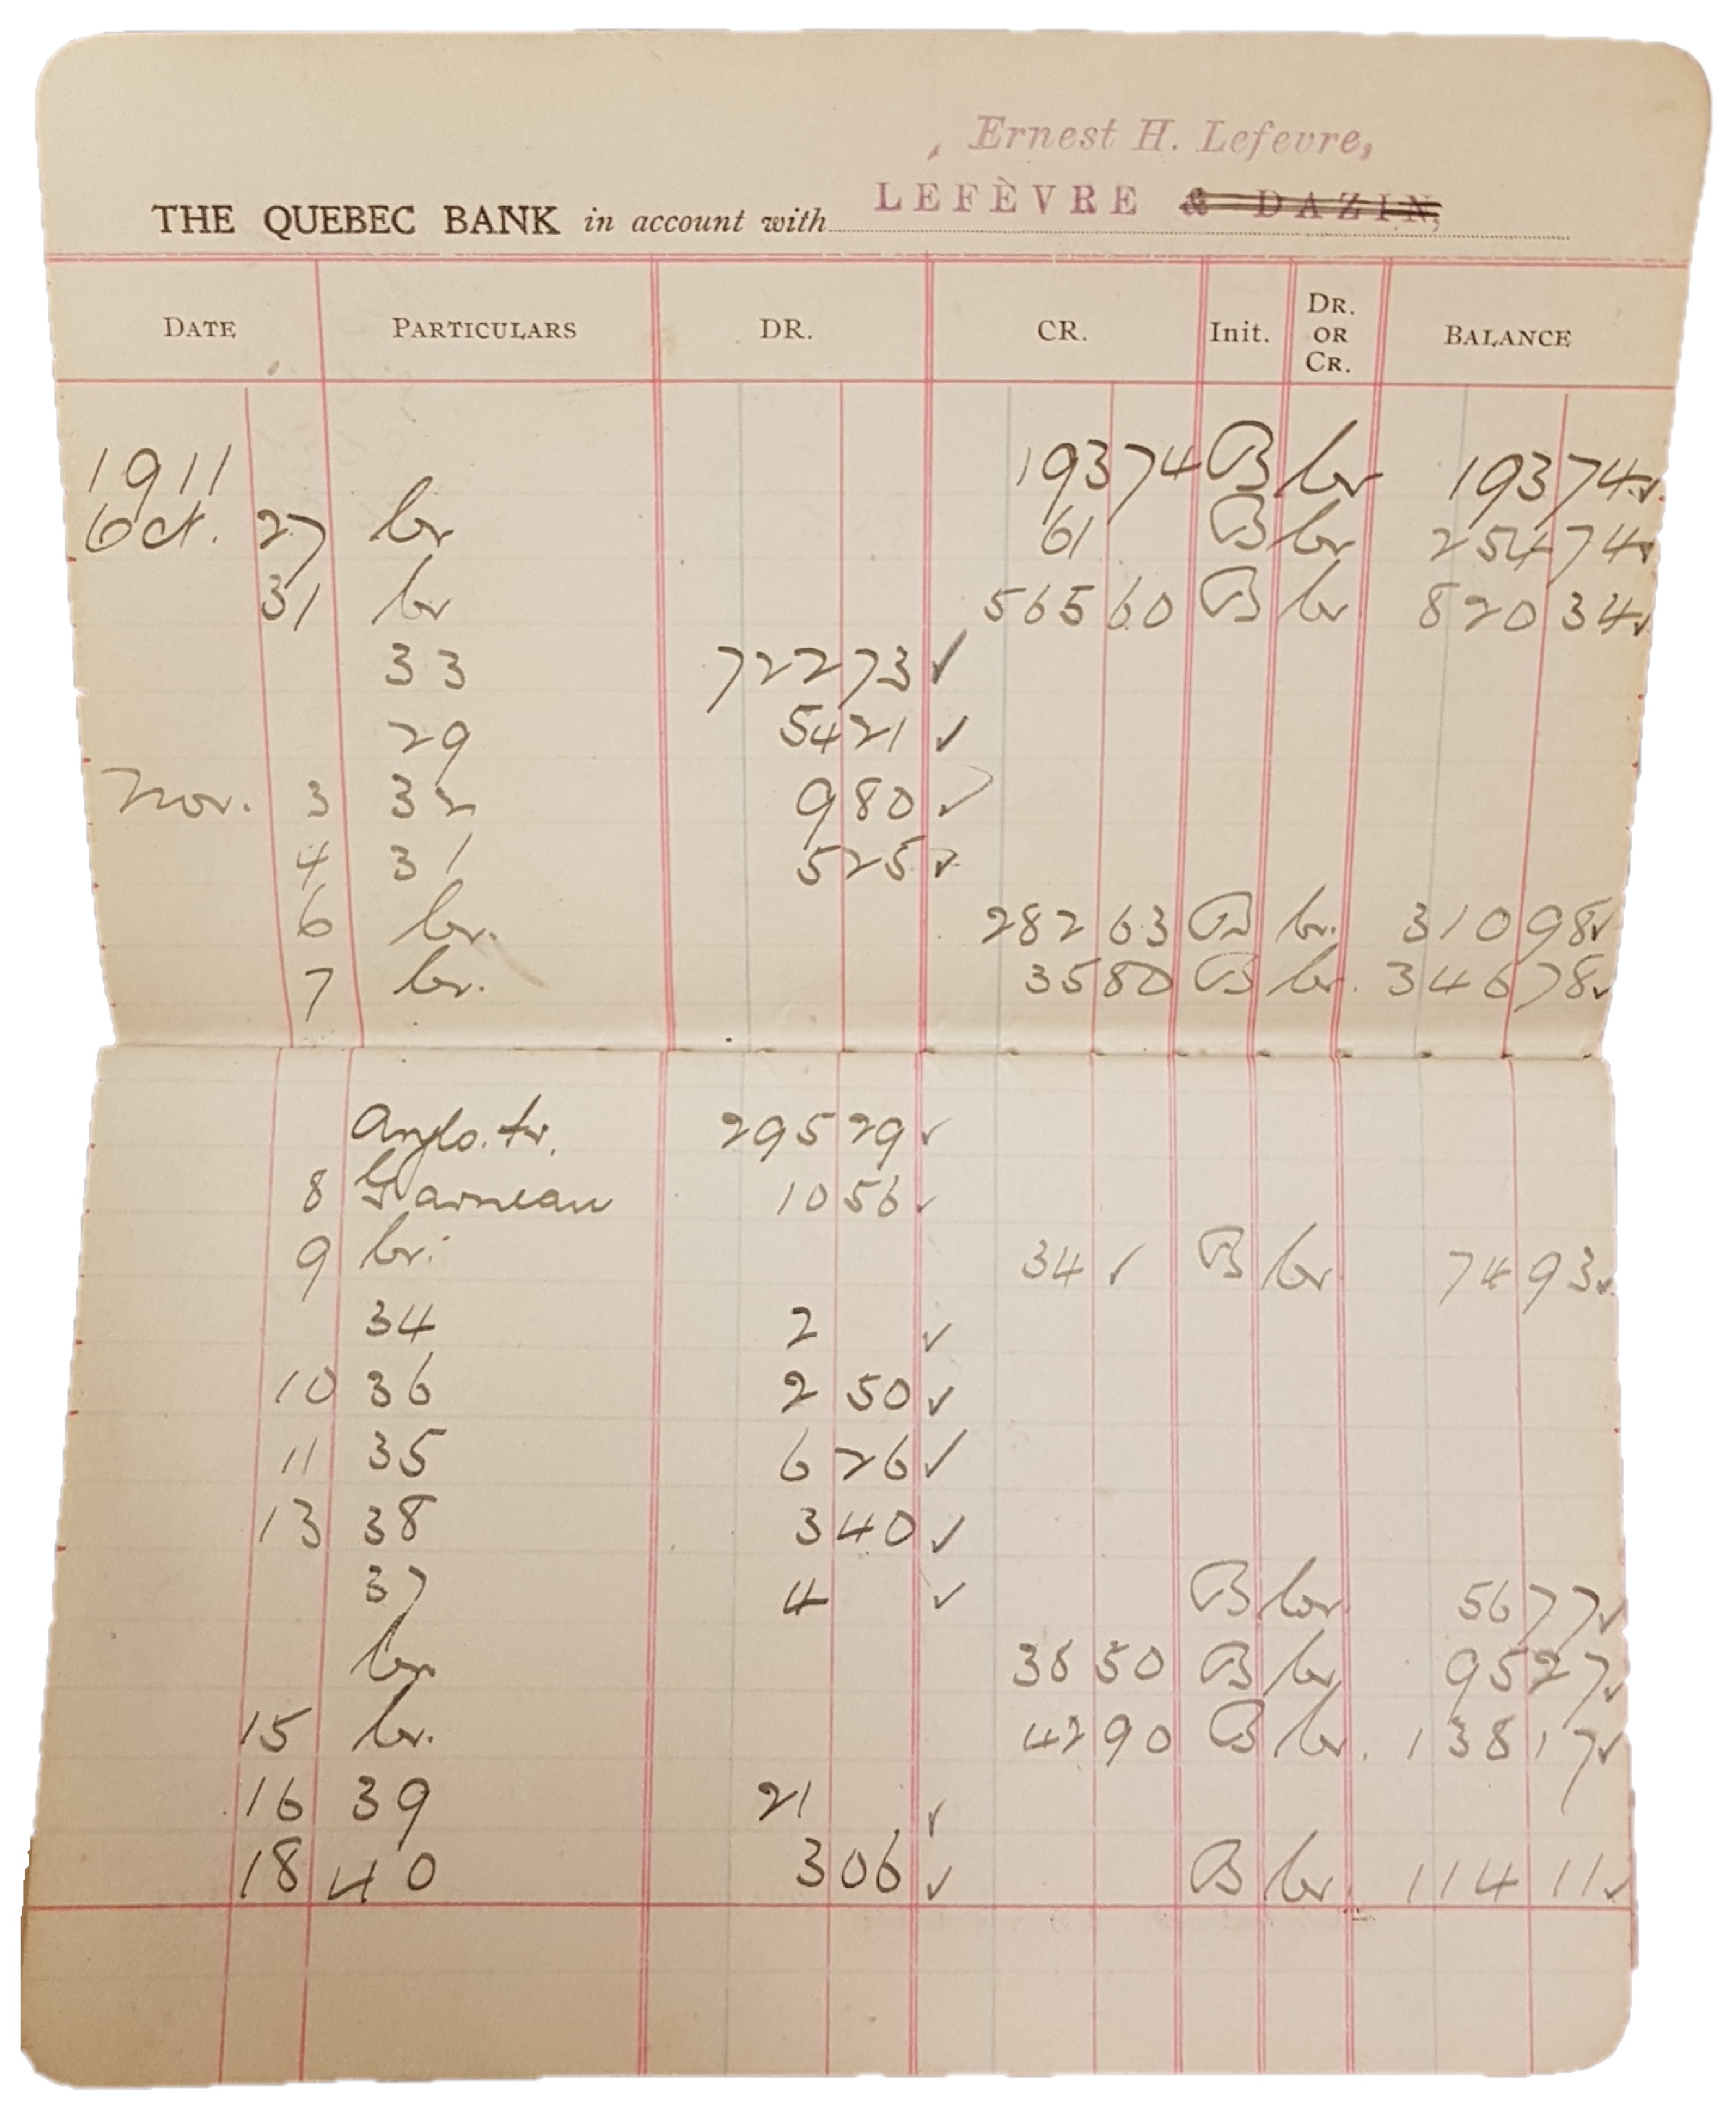 Ernest H. Lefevre,
THE QUEBEC BANK in account with LEFÈVRE & DAZIN,
DATE PARTICULARS DR. CR. Init. DR. OR CR. BALANCE
1911 193 74 B Cr 193 74 ✓
Oct. 27 Cr 61 B Cr 254 74 ✓
31 Cr 565 60 B Cr 820 34 ✓
33 722 73 ✓
29 54 21 ✓
Nov. 3 32 9 80 ✓
4 31 5 25 ✓
6 Cr. 282 63 B Cr. 310 98 ✓
7 Cr. 35 80 B Cr. 346 78 ✓
Anglo. tr. 295 29 ✓
8 Garneau 10 56 ✓
9 Cr. 34 ✓ B Cr 74 93 ✓
34 2 ✓
10 36 2 50 ✓
11 35 6 26 ✓
13 38 3 40 ✓
37 4 ✓ B Cr. 56 77 ✓
Cr. 38 50 B Cr 95 27 ✓
15 Cr. 42 90 B Cr. 138 17 ✓
16 39 21 ✓
18 40 3 06 ✓ B Cr. 114 11 ✓